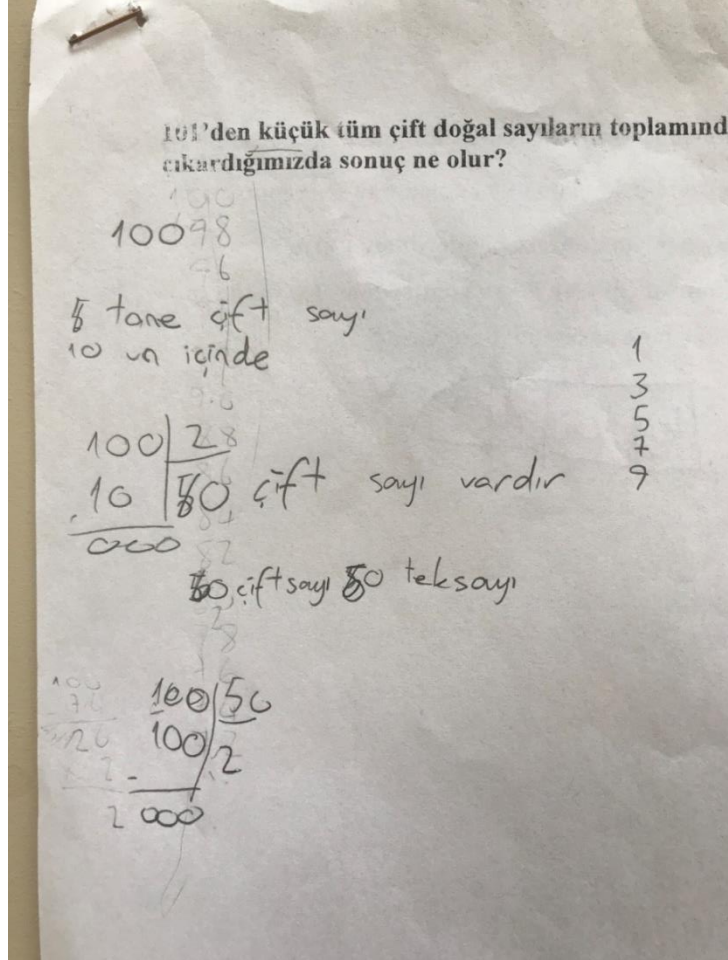 101'den küçük tüm çift doğal sayıların toplamınd
çıkardığımızda sonuç ne olur?
100
98
96
5 tane çift sayı
10 un içinde
1
3
5
7
9
100 2
10 50 çift sayı vardır
000
50 çift sayı 50 tek sayı
100 50
100 2
000